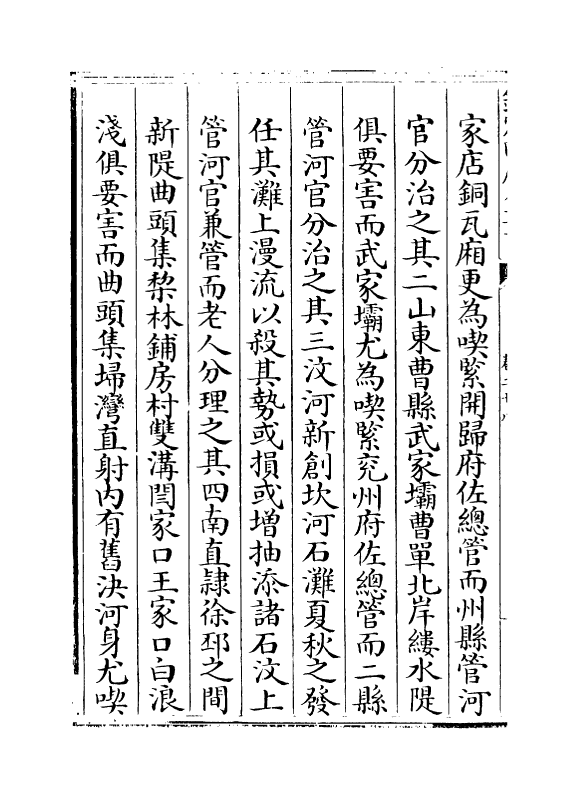 家店銅瓦廂更為喫緊開歸府佐總管而州縣管河
官分治之其二山東曹縣武家壩曹單北岸縷水隄
俱要害而武家壩尤為喫緊兖州府佐總管而二縣
管河官分治之其三汶河新創坎河石灘夏秋之發
任其灘上漫流以殺其勢或損或增抽添諸石汶上
管河官兼管而老人分理之其四南直隸徐邳之間
新隄曲頭集棃林鋪房村雙溝閆家口王家口白浪
淺俱要害而曲頭集埽灣直射内有舊決河身尤喫